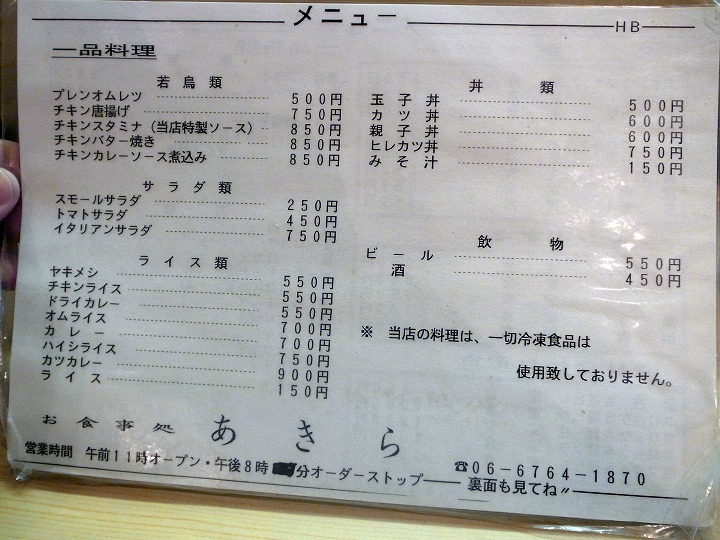 メニュー
HB
一品料理
若鳥類
プレンオムレツ 500円
チキン唐揚げ 750円
チキンスタミナ(当店特製ソース) 850円
チキンバター焼き 850円
チキンカレーソース煮込み 850円
サラダ類
スモールサラダ 250円
トマトサラダ 450円
イタリアンサラダ 750円
ライス類
ヤキメシ 550円
チキンライス 550円
ドライカレー 550円
オムライス 700円
カレー 700円
ハイシライス 750円
カツカレー 900円
ライス 150円
丼類
玉子丼 500円
カツ丼 600円
親子丼 600円
ヒレカツ丼 750円
みそ汁 150円
飲物
ビール 550円
酒 450円
※ 当店の料理は、一切冷凍食品は
使用致しておりません。
お食事処 あきら
営業時間 午前11時オープン・午後8時 分オーダーストップ
☎06-6764-1870
裏面も見てね〃